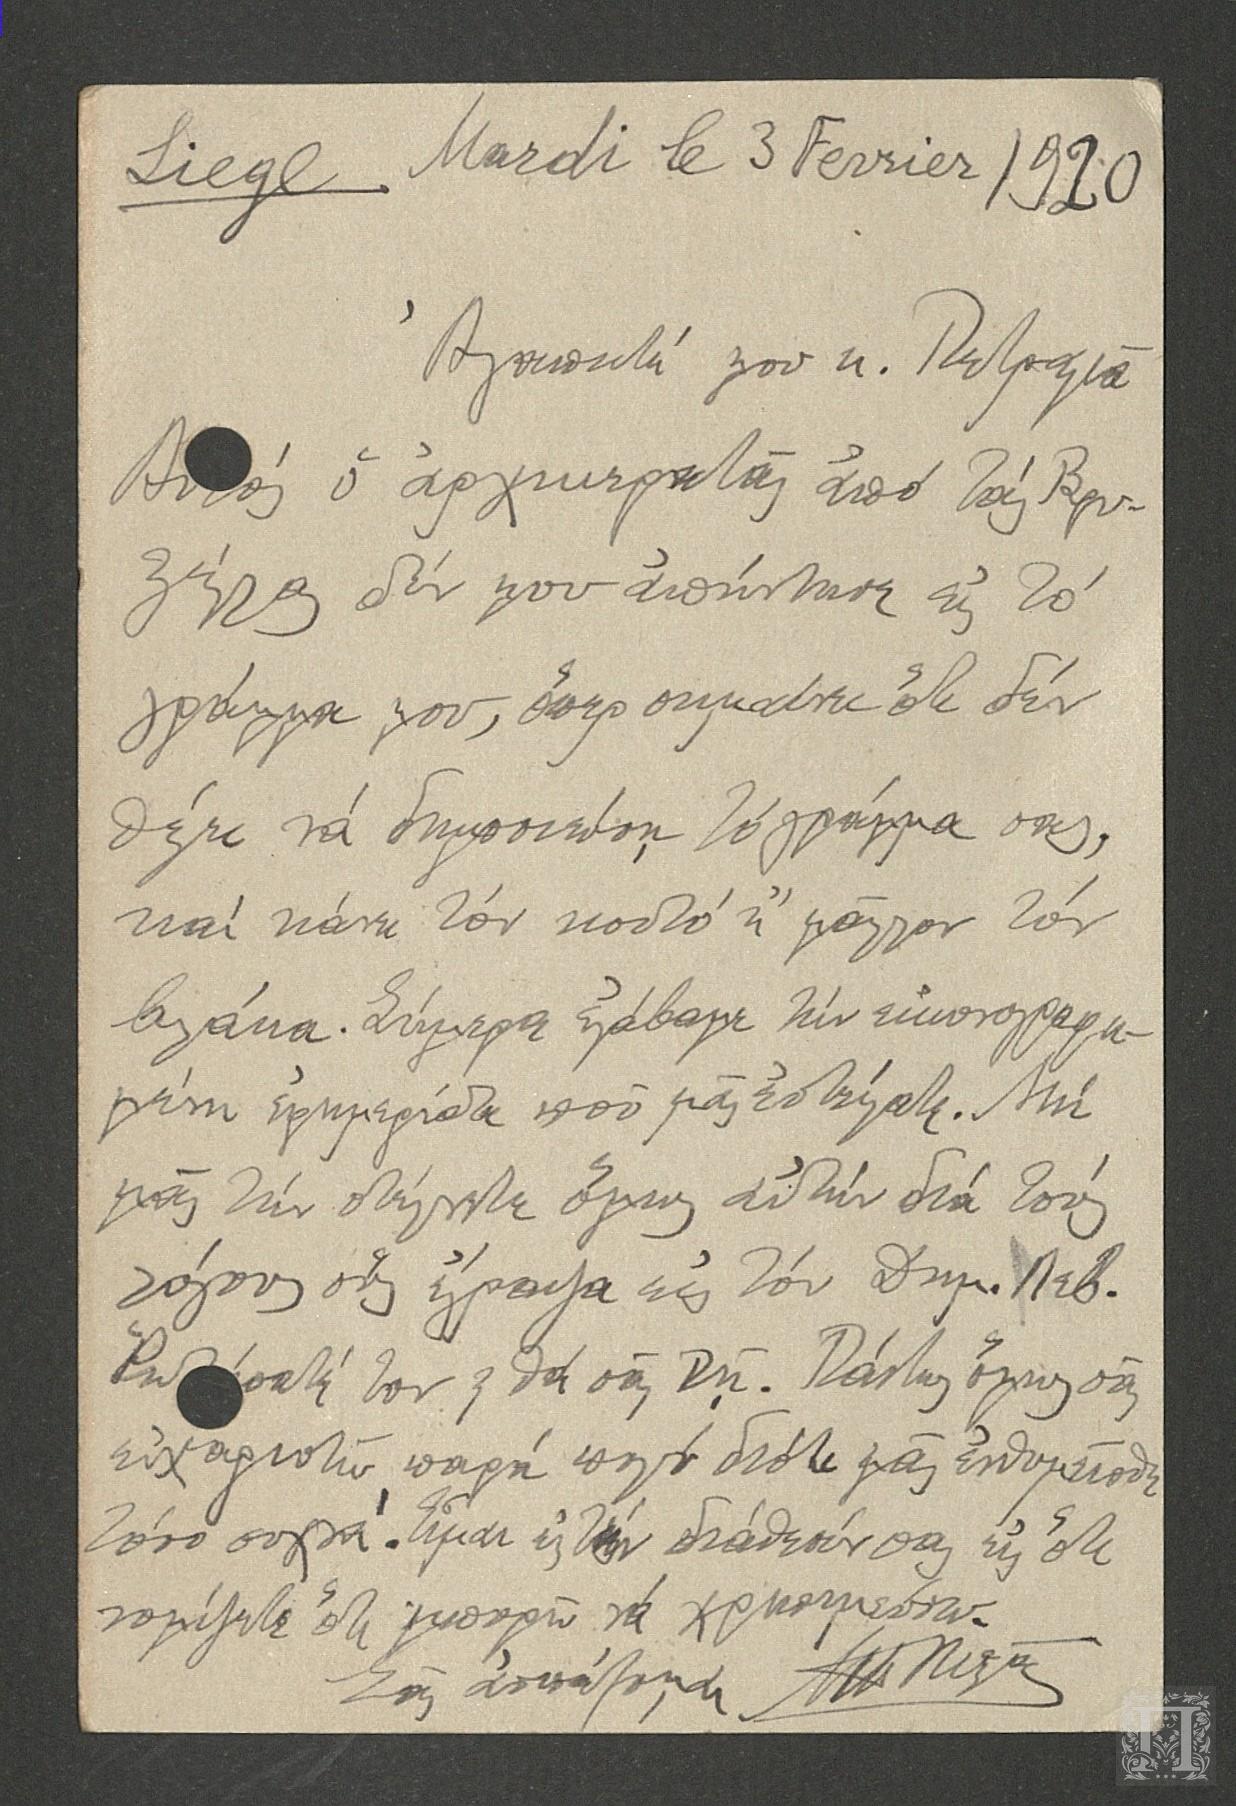 Liege. Mardi le 3 Fevrier 1920
Ἀγαπητέ μου κ. Πετραλιᾶ
Αὐτός ὁ ἀρχικερατᾶς ἀπό τάς Βρυ-
ξέλλας δέν μου ἀπήντησε εἰς τό
γράμμα μου, ὅπερ σημαίνει ὅτι δέν
θέλει νά δημοσιεύσῃ τό γράμμα σας,
καί κάνει τόν κουτό ἤ μᾶλλον τόν
βλάκα. Σήμερα ἐλάβαμε τήν εἰκονογραφη-
μένη ἐφημερίδα ποῦ μᾶς ἐστείλατε. Μή
μᾶς τήν στέλνετε ὅμως αὐτήν διά τούς
λόγους οὕς ἔγραψα εἰς τόν Δημ. Λεβ.
Ἐρωτήσατέ τον & θά σᾶς πῇ. Πάντως ὅμως σᾶς
εὐχαριστῶ παρά πολύ διότι μᾶς ἐνθυμεῖσθε
τόσο συχνά. Εἶμαι εἰς τήν διάθεσίν σας εἰς ὅτι
νομίζετε ὅτι ἠμπορῶ νά χρησιμεύσω.
Σᾶς ἀσπάζομαι